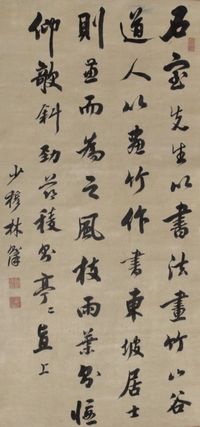 石室先生以書法畫竹山谷
道人以畫竹作書東坡居士
則兼而為之風枝雨葉偃
仰欹斜勁節稜亭亭直上
少穆林則徐